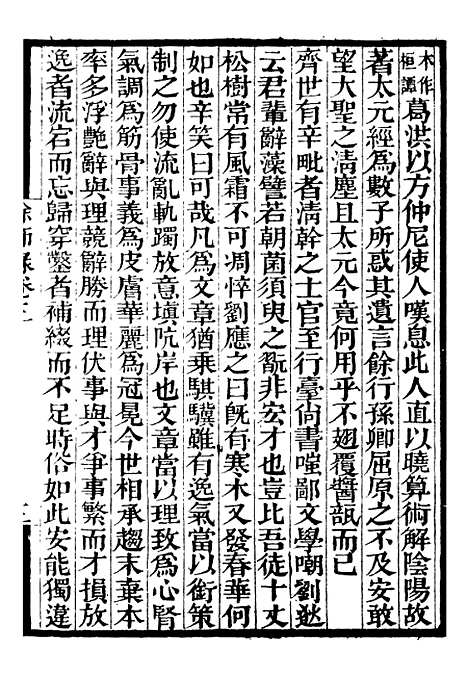 本作桓譚葛洪以方仲尼使人嘆息此人直以曉算術解陰陽故
著太元經爲數子所惑其遺言餘行孫卿屈原之不及安敢
望大聖之淸塵且太元今竟何用乎不翅覆醬瓿而已
齊世有辛毗者淸幹之士官至行臺尙書嗤鄙文學嘲劉逖
云君輩辭藻譬若朝菌須臾之翫非宏才也豈比吾徒十丈
松樹常有風霜不可凋悴劉應之曰旣有寒木又發春華何
如也辛笑曰可哉凡爲文章猶乘騏驥雖有逸氣當以銜策
制之勿使流亂軌躅放意塡阬岸也文章當以理致爲心腎
氣調爲筋骨事義爲皮膚華麗爲冠冕今世相承趨末棄本
率多浮艷辭與理競辭勝而理伏事與才爭事繁而才損放
逸者流宕而忘歸穿鑿者補綴而不足時俗如此安能獨違
餘師錄卷三